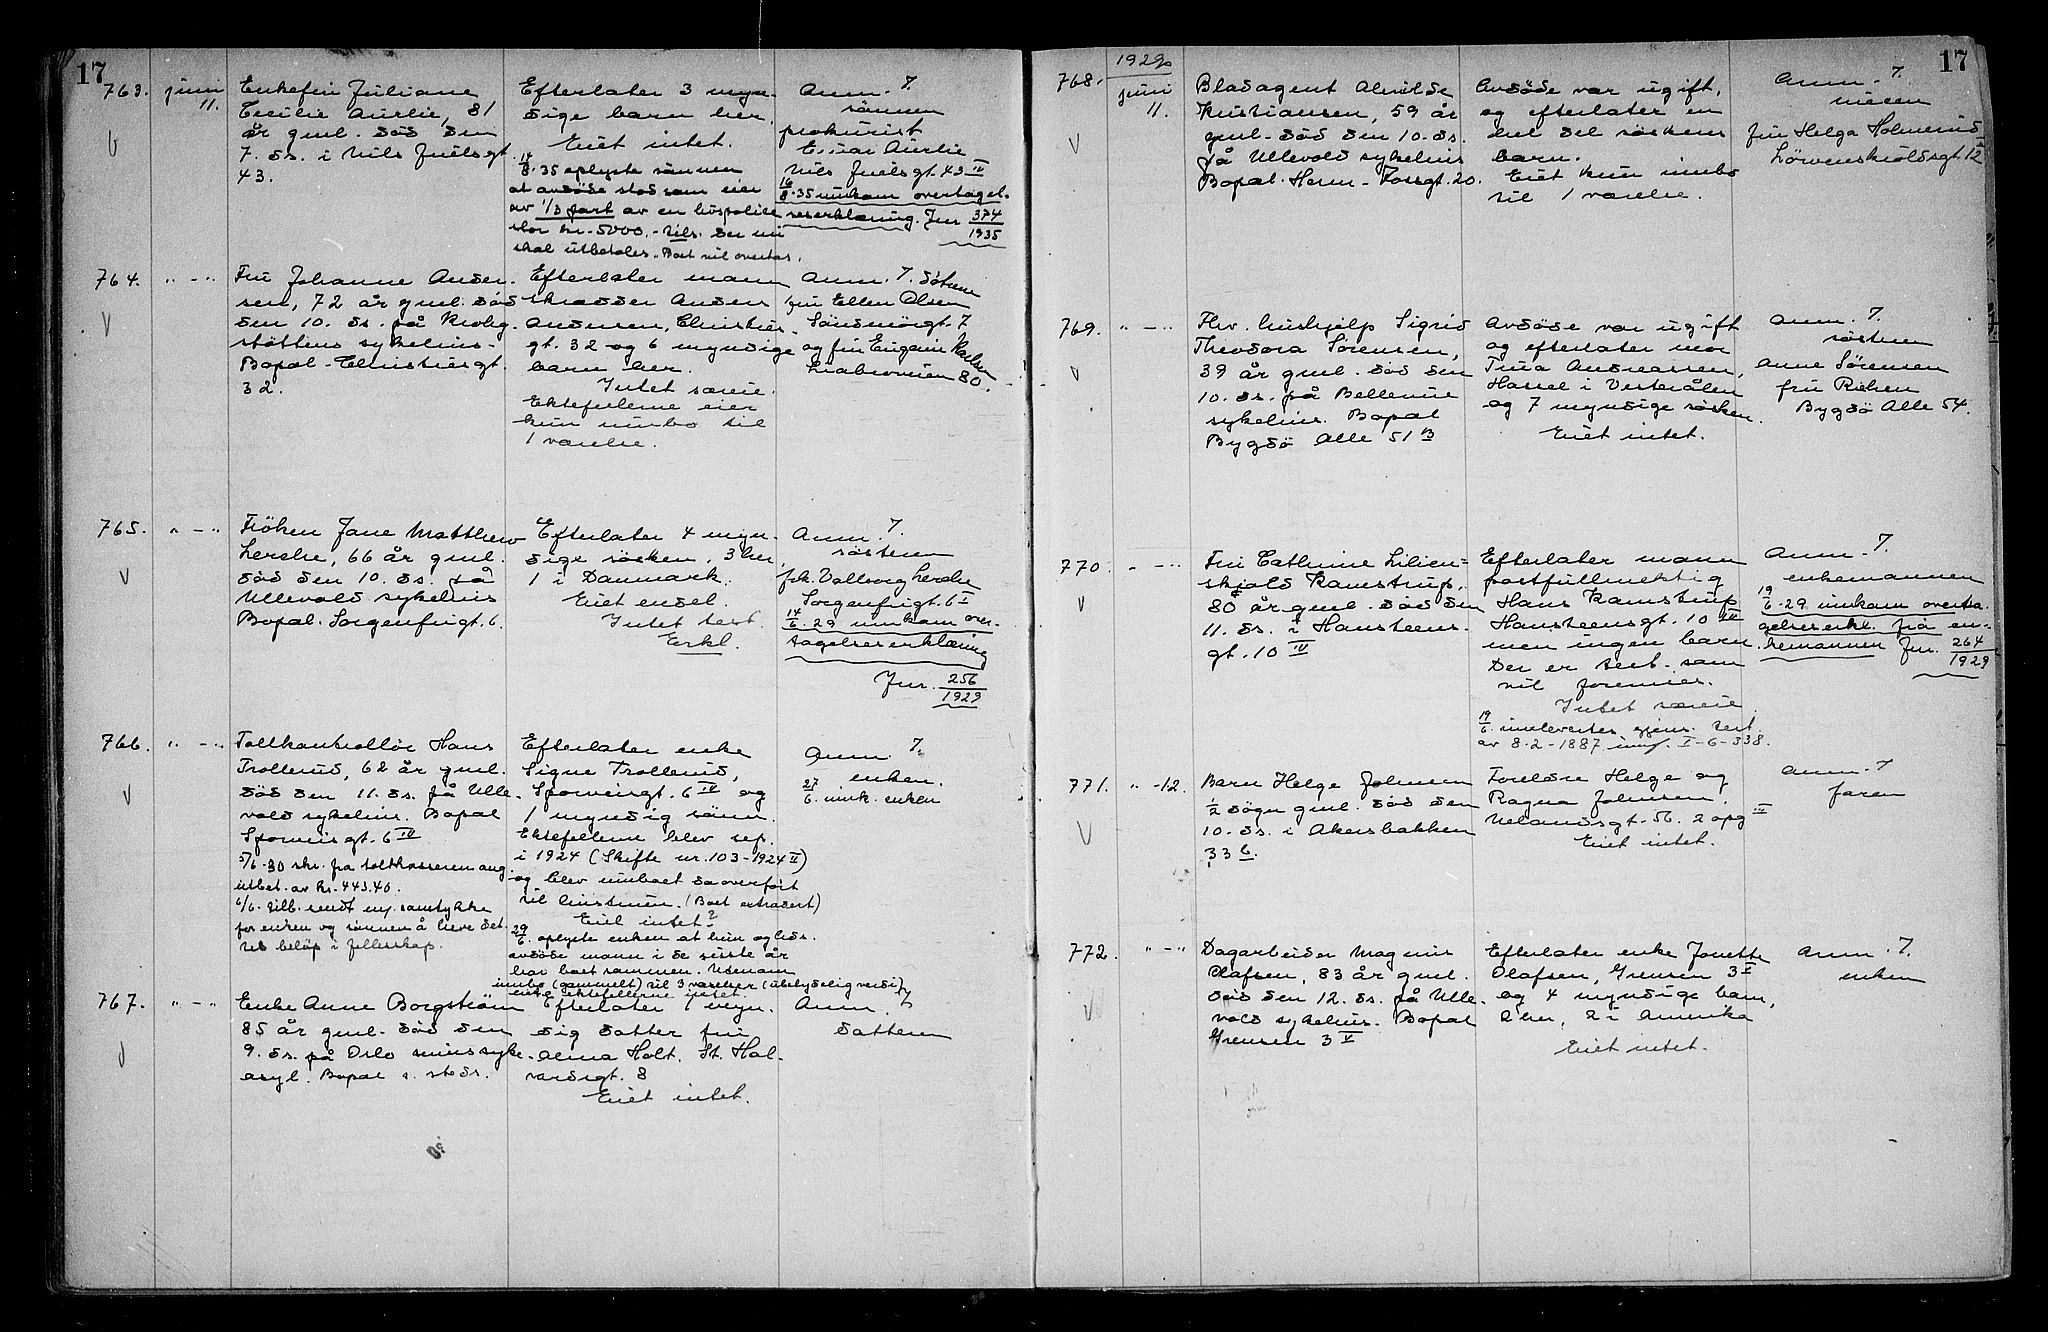 17
763. juni 11.
Enkefru Juliane
Cecilie Aurlie, 81
år gml. död den
7. ds. i Nils Juelsgt.
43.
Efterlater 3 myn-
dige barn her.
Eiet intet.
14/8.35 oplyste sönnen
at avdöde stod som eier
av 1/3 part av en livspolise
stor kr. 5000.- tils. der nu
skal utbetales. Boet vil overtas.
Anm. 7.
sönnen
prokurist
Einar Aurlie
Nils Juelsgt. 43 II
16/8.35 innkom overtagel-
seserklæring. Jnr. 374/1935
764. " - "
Fru Johanne Ander-
sen, 72 år gml. död
den 10. ds. på Krohg-
støttens sykehus.
Bopæl - Christiesgt.
32.
Efterlater mann
skredder Anders
Andersen, Christies-
gt. 32 og 6 myndige
barn her.
Intet særeie.
Ektefellerne eier
kun innbo til
1 værelse.
Anm. 7. döttrene
fru Ellen Olsen
Söndmörgt. 7
og fru Eugenie Karlsen
Liabroveien 80.
765. " - "
Fröken Jane Matthew
Lerche, 66 år gml.
död den 10. ds. på
Ullevold sykehus
Bopæl. Sorgenfrigt. 6.
Efterlater 4 myn-
dige sösken, 3 her,
1 i Danmark.
Eiet endel.
Intet test.
Erkl.
Anm. 7.
sösteren
frk. Valborg Lerche
Sorgenfrigt. 6 I
14/6.29 innkom over-
tagelseserklæring
Jnr. 256/1929
766. " - "
Toldkontrollör Hans
Trollerud, 62 år gml.
död den 11. ds. på Ulle-
vold sykehus. Bopæl
Sporveisgt. 6 IV
5/6.30 skr. fra toldkassereren ang.
utbet. av kr. 443.40.
6/6. tilb. sendt m. samtykke
for enken og sönnen å heve det-
tes belöp i fellesskap.
Efterlater enke
Signe Trollerud,
Sporveisgt. 6 IV og
1 myndig sönn.
Ektefellene blev sep.
i 1924 (Skifte nr. 103-1924 II)
og blev innboet da overfört
til hustruen. (Boet extradert)
Eiet intet?
29/6. oplyste enken at hun og hds.
avdöde mann i de siste år
har boet sammen. Utenom
innbo (gammelt) til 3 værelser (ubetydelig verdi)
eide ektefellerne intet.
Anm. 7.
enken.
27/6. innk. enken
767. " - "
Enke Anne Borgström
85 år gml. död den
9. ds. på Oslo sinnssyke-
asyl. Bopæl s. steds.
Efterlater 1 myn-
dig datter fru
Alma Holt, St. Hal-
vardsgt. 8
Eiet intet.
Anm. 7
datteren
17
1929
768. juni 11.
Bladagent Alvilde
Kristiansen, 59 år
gml. död den 10. ds.
på Ullevold sykehus
Bopæl. Herm. Fossgt. 20.
Avdöde var ugift,
og efterlater en
hel del söskens
barn.
Eiet kun innbo
til 1 værelse.
Anm. 7.
niecen
fru Helga Holmerud
Lövenskioldsgt. 12 II
769. " - "
Fhv. hushjelp Sigrid
Theodora Sörensen,
39 år gml. död den
10. ds. på Bellevue
sykehus. Bopæl
Bygdö Alle 51 B
Avdöde var ugift
og efterlater mor
Trina Andreassen,
Hassel i Vesterålen
og 7 myndige sösken.
Eiet intet.
Anm. 7.
sösteren
Anne Sörensen
fru Rieber
Bygdö Alle 54.
770. " - "
Fru Cathrine Lilien-
skjold Kamstrup,
80 år gml. död den
11. ds. i Hansteens-
gt. 10 IV
Efterlater mann
postfullmektig
Hans Kamstrup
Hansteensgt. 10 IV
men ingen barn.
Der er test. som
vil forevises.
Intet særeie.
19/6. innlevertes gjens. test.
av 8-2-1887 I-6-338.
Anm. 7.
enkemannen
19/6.29 innkom overta-
gelseserkl. fra en-
kemannen Jnr. 264/1929
771. " - 12.
Barn Helge Johnsen
1/2 dögn gml. död den
10. ds. i Akersbakken
33 b.
Foreldre Helge og
Ragna Johnsen,
Uelandsgt. 56. 2 opg III
Eiet intet.
Anm. 7
faren
772. " - "
Dagarbeider Magnus
Olafsen, 83 år gml.
död den 12. ds. på Ulle-
vold sykehus. Bopæl
Grensen 3 V
Efterlater enke Jonette
Olafsen, Grensen 3 V
og 4 myndige barn,
2 her, 2 i Amerika
Eiet intet.
Anm. 7.
enken